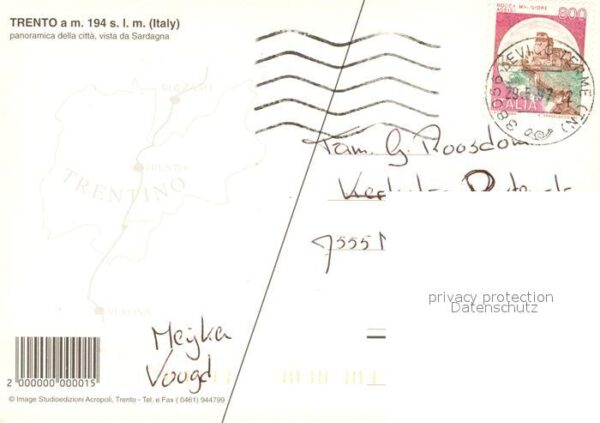 TRENTO a m. 194 s. l. m. (Italy)
panoramica della città, vista da Sardagna
ROCCA MAGGIORE
ASSISI
800
ITALIA
38056 LEVICO TERME (TN)
BOLZANO
TRENTO
TRENTINO
VERONA
Fam. G. Roosdom
7555
privacy protection
Datenschutz
Meijka
Voogd
2 000000 000015
© Image Studioedizioni Acropoli, Trento - Tel. e Fax ( 0461) 944799